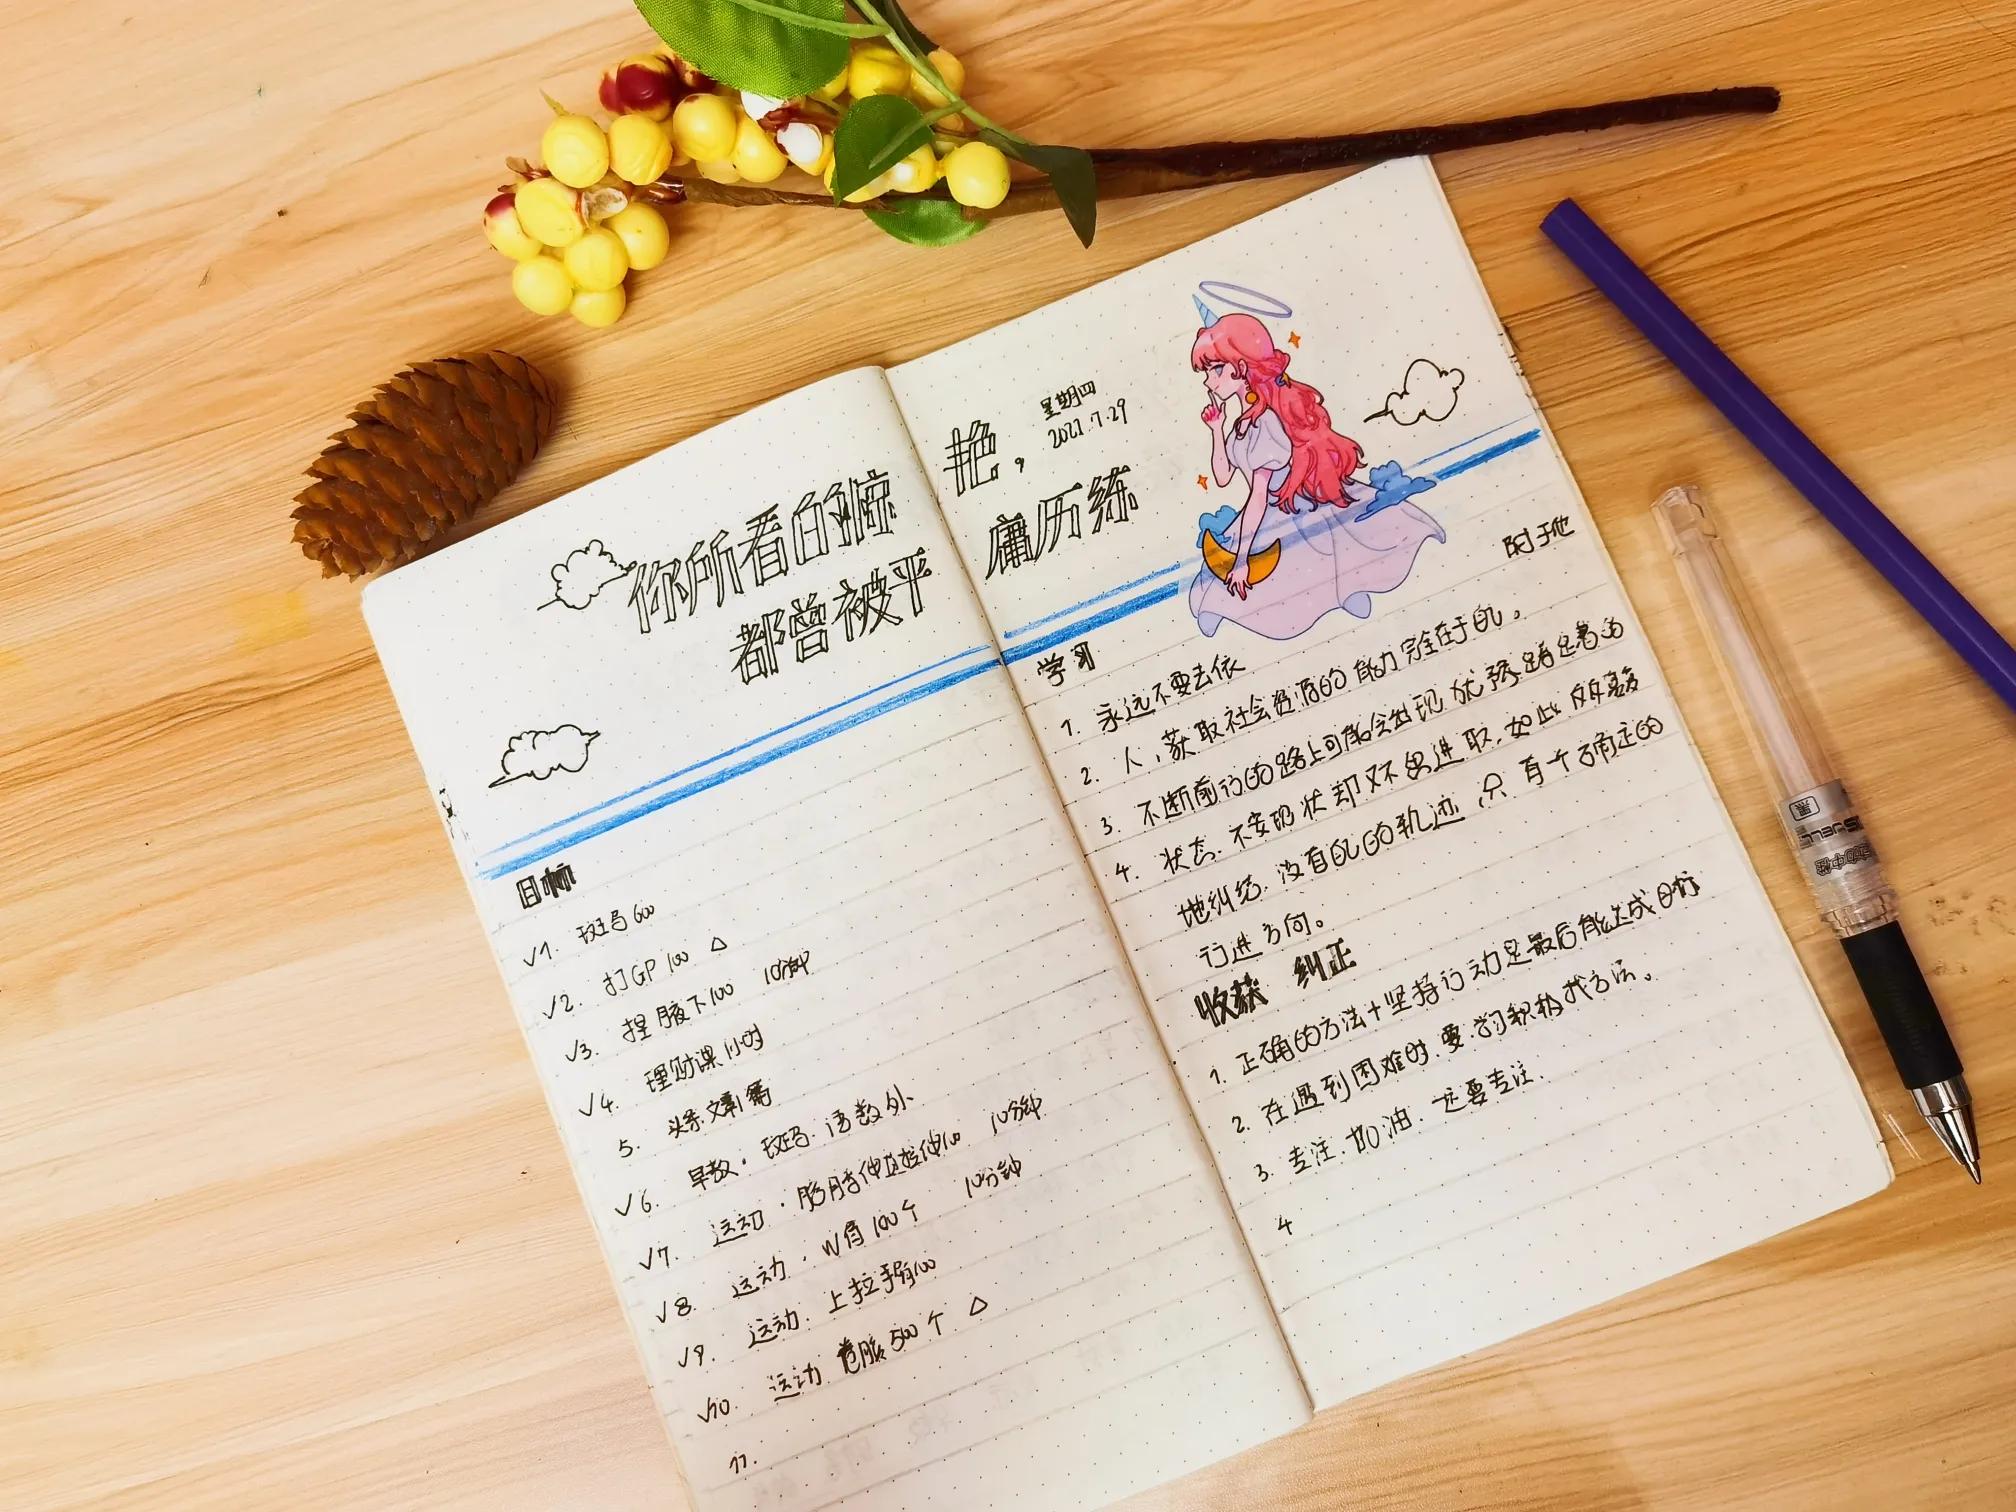 你所看的惊艳，
都曾被平庸历练
星期四
2021.7.29
目标
√1. 斑马600
√2. 打GP 100 △
√3. 捏腋下100 10分钟
√4. 理财课1小时
5. 头条文章1篇
√6. 早教·斑马·语数外
√7. 运动·拉伸100 10分钟
√8. 运动·W角100个 10分钟
√9. 运动·上拉手臂100
√10. 运动 卷腹500个 △
11.
学习
1. 永远不要去依附于他
人，获取社会资源的能力完全在于自己。
2. 不断前行的路上可能会出现犹豫踏足着的
3. 状态，不安现状却又不思进取，如此反反复复
4. 地纠结，没有自己的轨迹，只有个不确定的
行进方向。
收获 纠正
1. 正确的方法+坚持行动是最后能达成目标
2. 在遇到困难时，要学习积极找方法。
3. 专注，加油，还要专注.
4